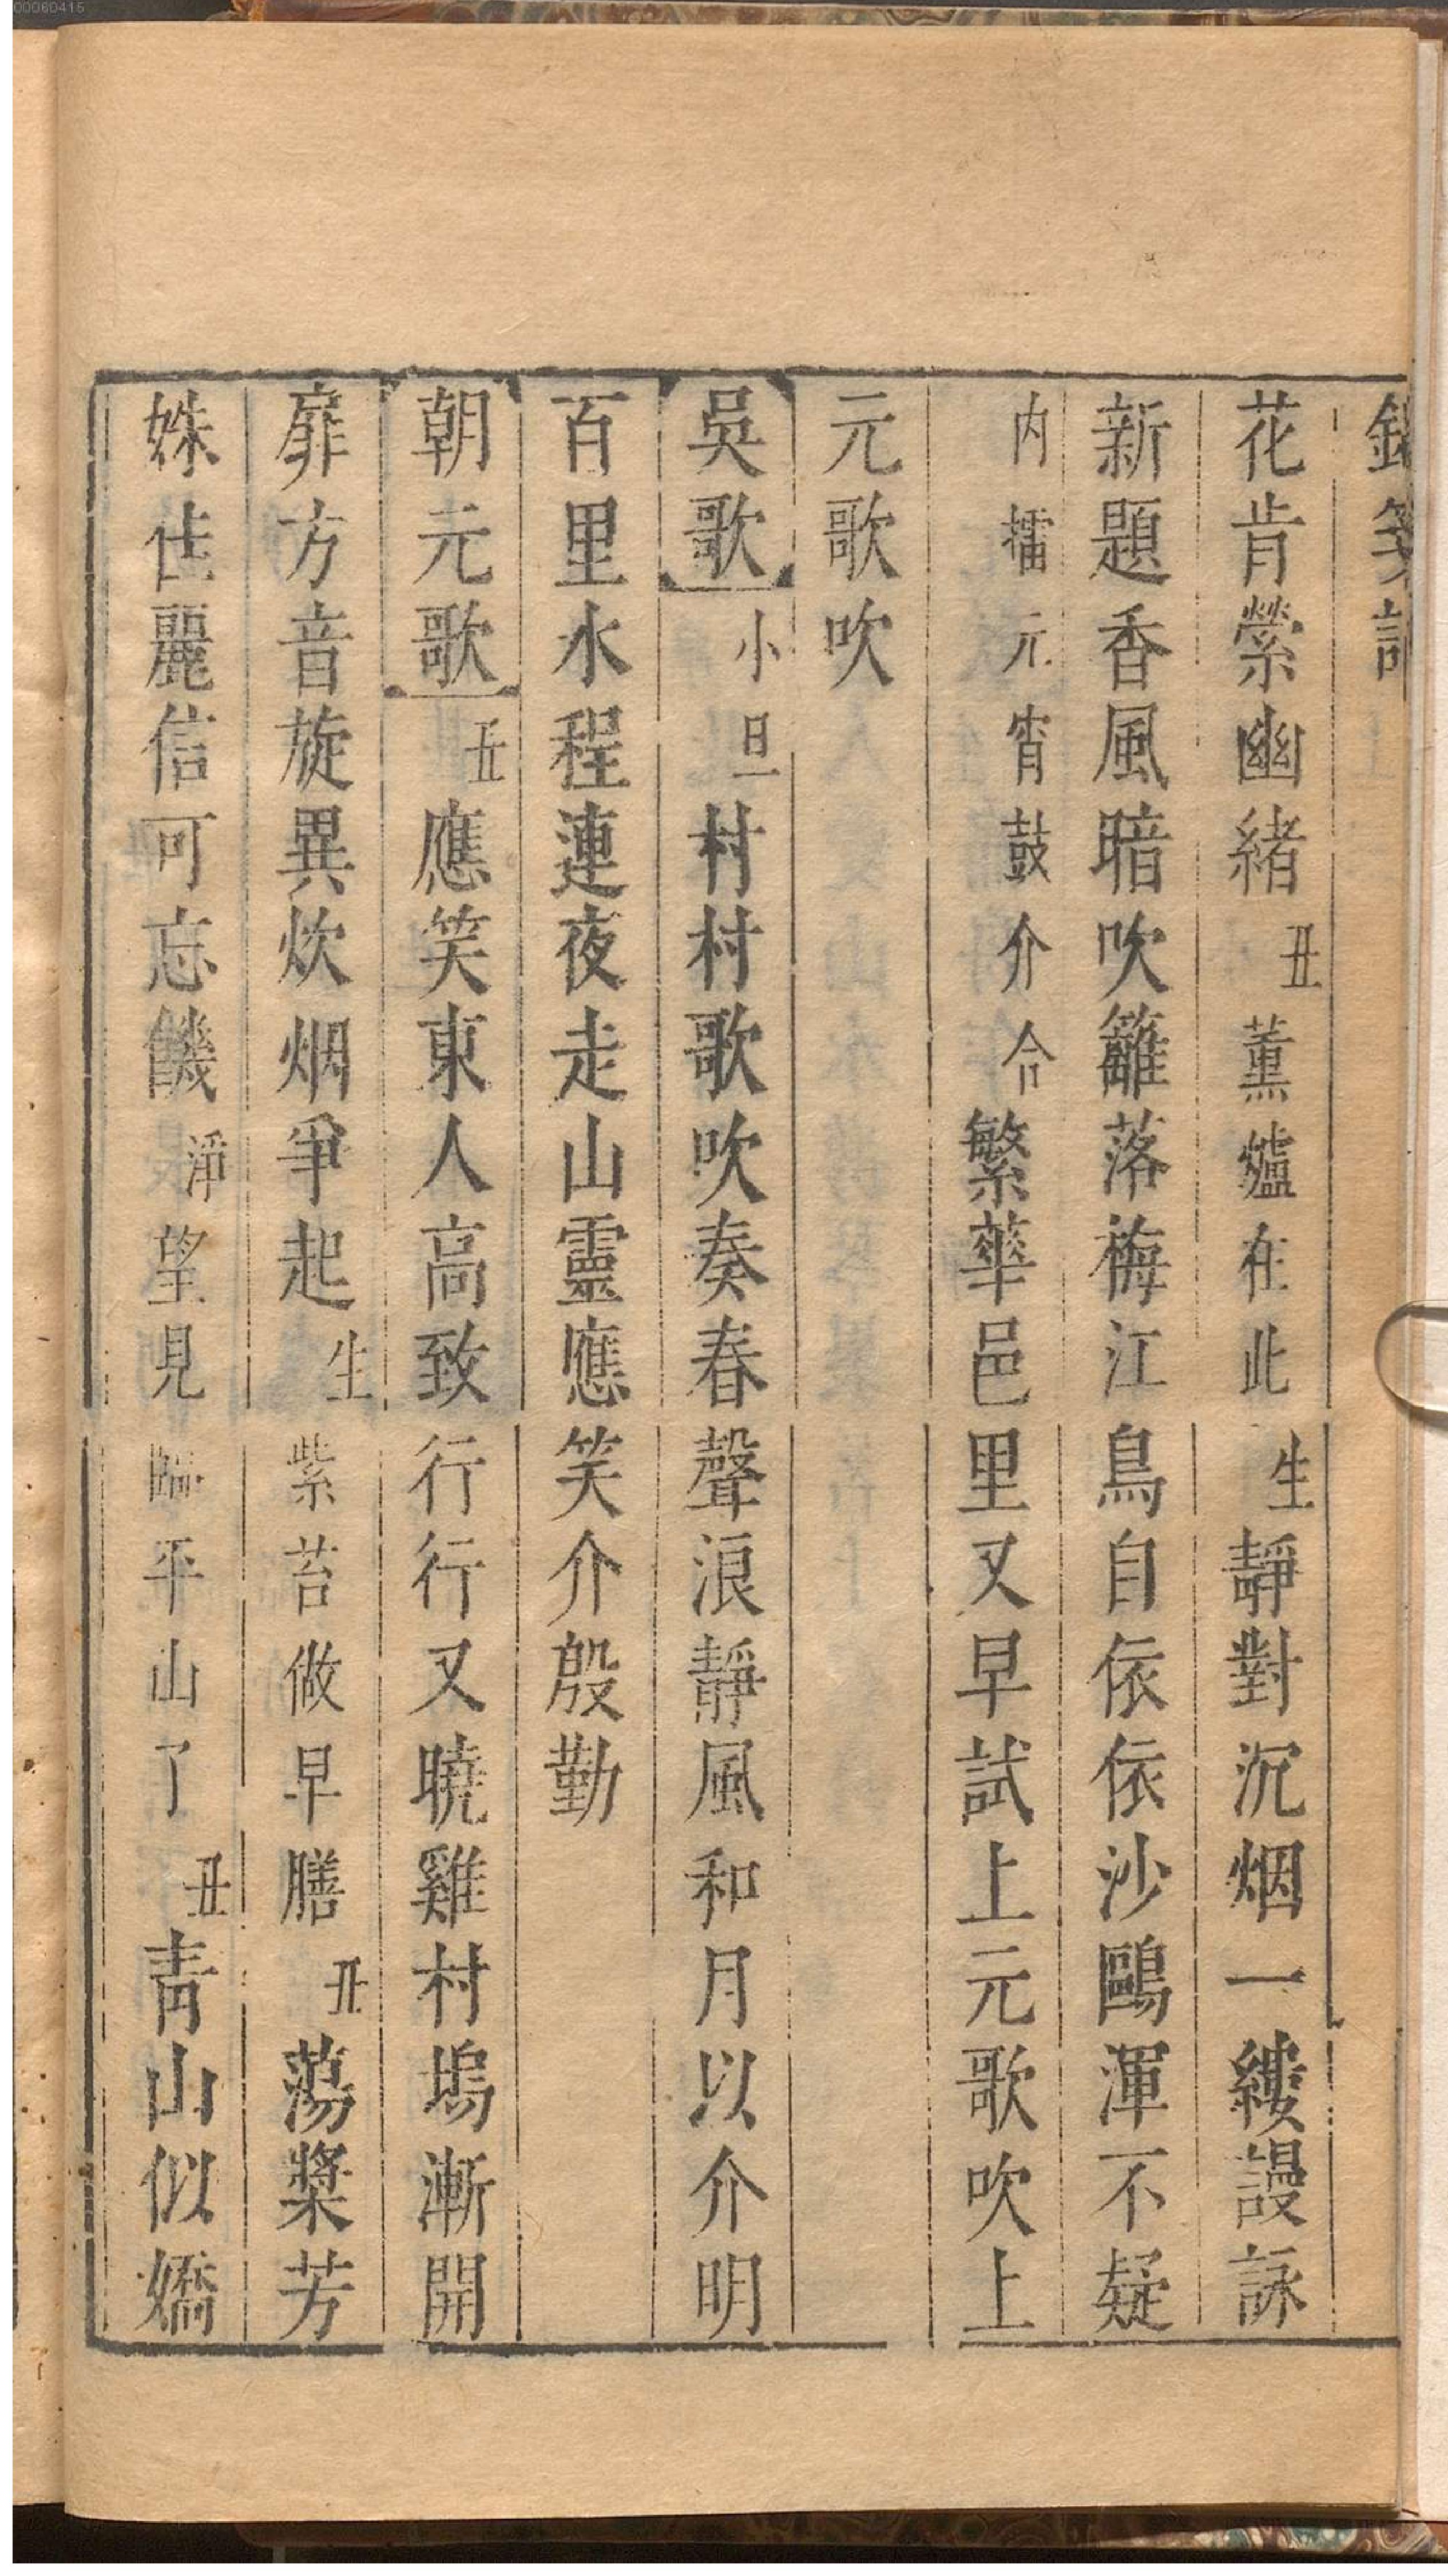 00060415
錦箋記
花肯縈幽緒丑薰爐在此生靜對沉烟一縷謾詠
新題香風暗吹籬落梅江鳥自依依沙鷗渾不疑
内擂元宵鼓介合繁華邑里又早試上元歌吹上
元歌吹
吳歌小旦村村歌吹奏春聲浪靜風和月以介明
百里水程連夜走山靈應笑介殷勤
朝元歌丑應笑東人高致行行又曉雞村塢漸開
扉方音旋異炊烟爭起生紫苔做早膳丑蕩槳芳
姝佳麗信可忘饑淨望見平山了丑青山似嬌